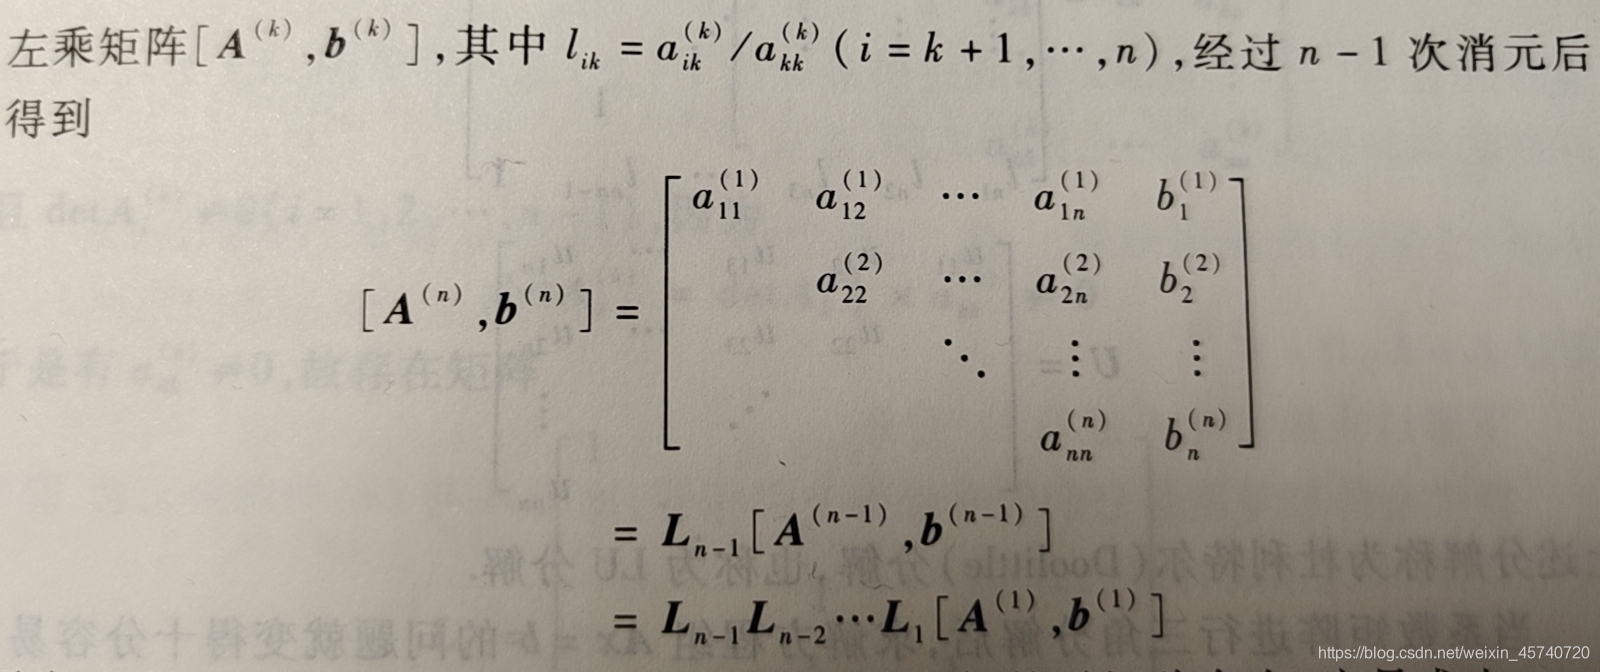 左乘矩阵[A^(k),b^(k)],其中 l_ik = a_ik^(k)/a_kk^(k)(i = k + 1,⋯,n),经过 n - 1 次消元后
得到
a_11^(1) a_12^(1) ⋯ a_1n^(1) b_1^(1)
a_22^(2) ⋯ a_2n^(2) b_2^(2)
[A^(n),b^(n)] =
⋱ ⋮ ⋮
a_nn^(n) b_n^(n)
= L_n-1[A^(n-1),b^(n-1)]
= L_n-1L_n-2⋯L_1[A^(1),b^(1)]
https://blog.csdn.net/weixin_45740720